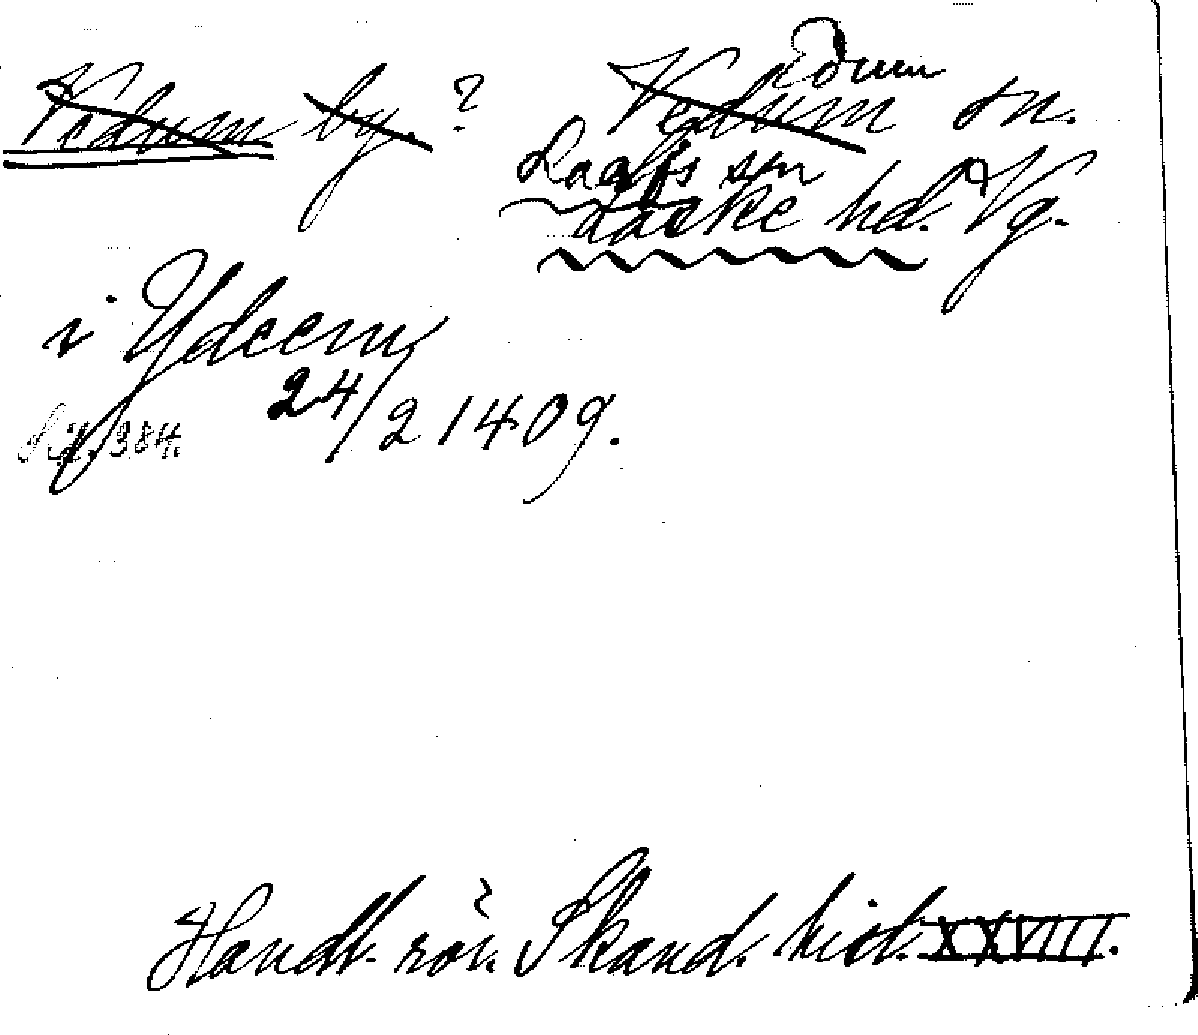 Vedum by. ? Vedum sn.
Edum
Laske hd. Vg.
i Ydeem
24/2 1409.
sid. 384.
Handl. rör. Skand. hist. XXVIII.